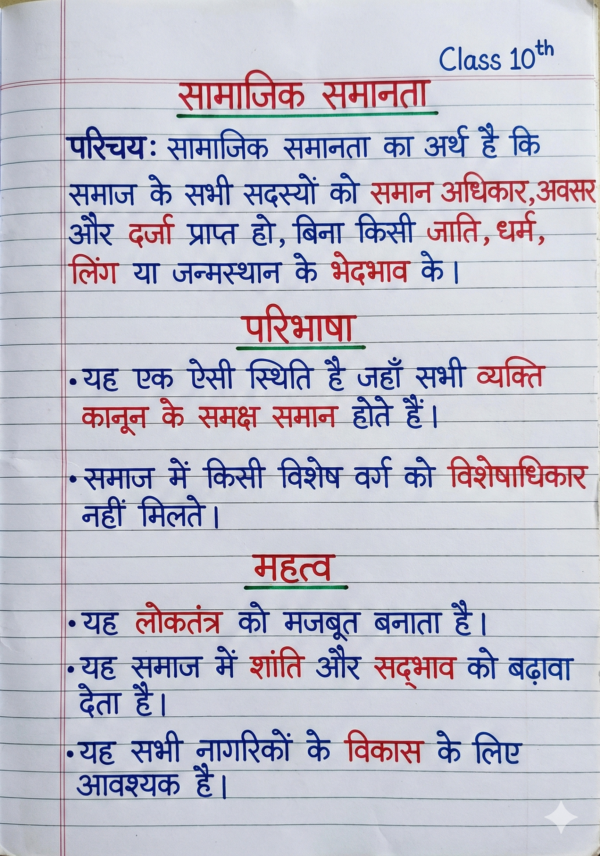 Class 10th
सामाजिक समानता
परिचय: सामाजिक समानता का अर्थ है कि
समाज के सभी सदस्यों को समान अधिकार, अवसर
और दर्जा प्राप्त हो, बिना किसी जाति, धर्म,
लिंग या जन्मस्थान के भेदभाव के।
परिभाषा
• यह एक ऐसी स्थिति है जहाँ सभी व्यक्ति
कानून के समक्ष समान होते हैं।
• समाज में किसी विशेष वर्ग को विशेषाधिकार
नहीं मिलते।
महत्व
• यह लोकतंत्र को मजबूत बनाता है।
• यह समाज में शांति और सद्‌भाव को बढ़ावा
देता है।
• यह सभी नागरिकों के विकास के लिए
आवश्यक है।